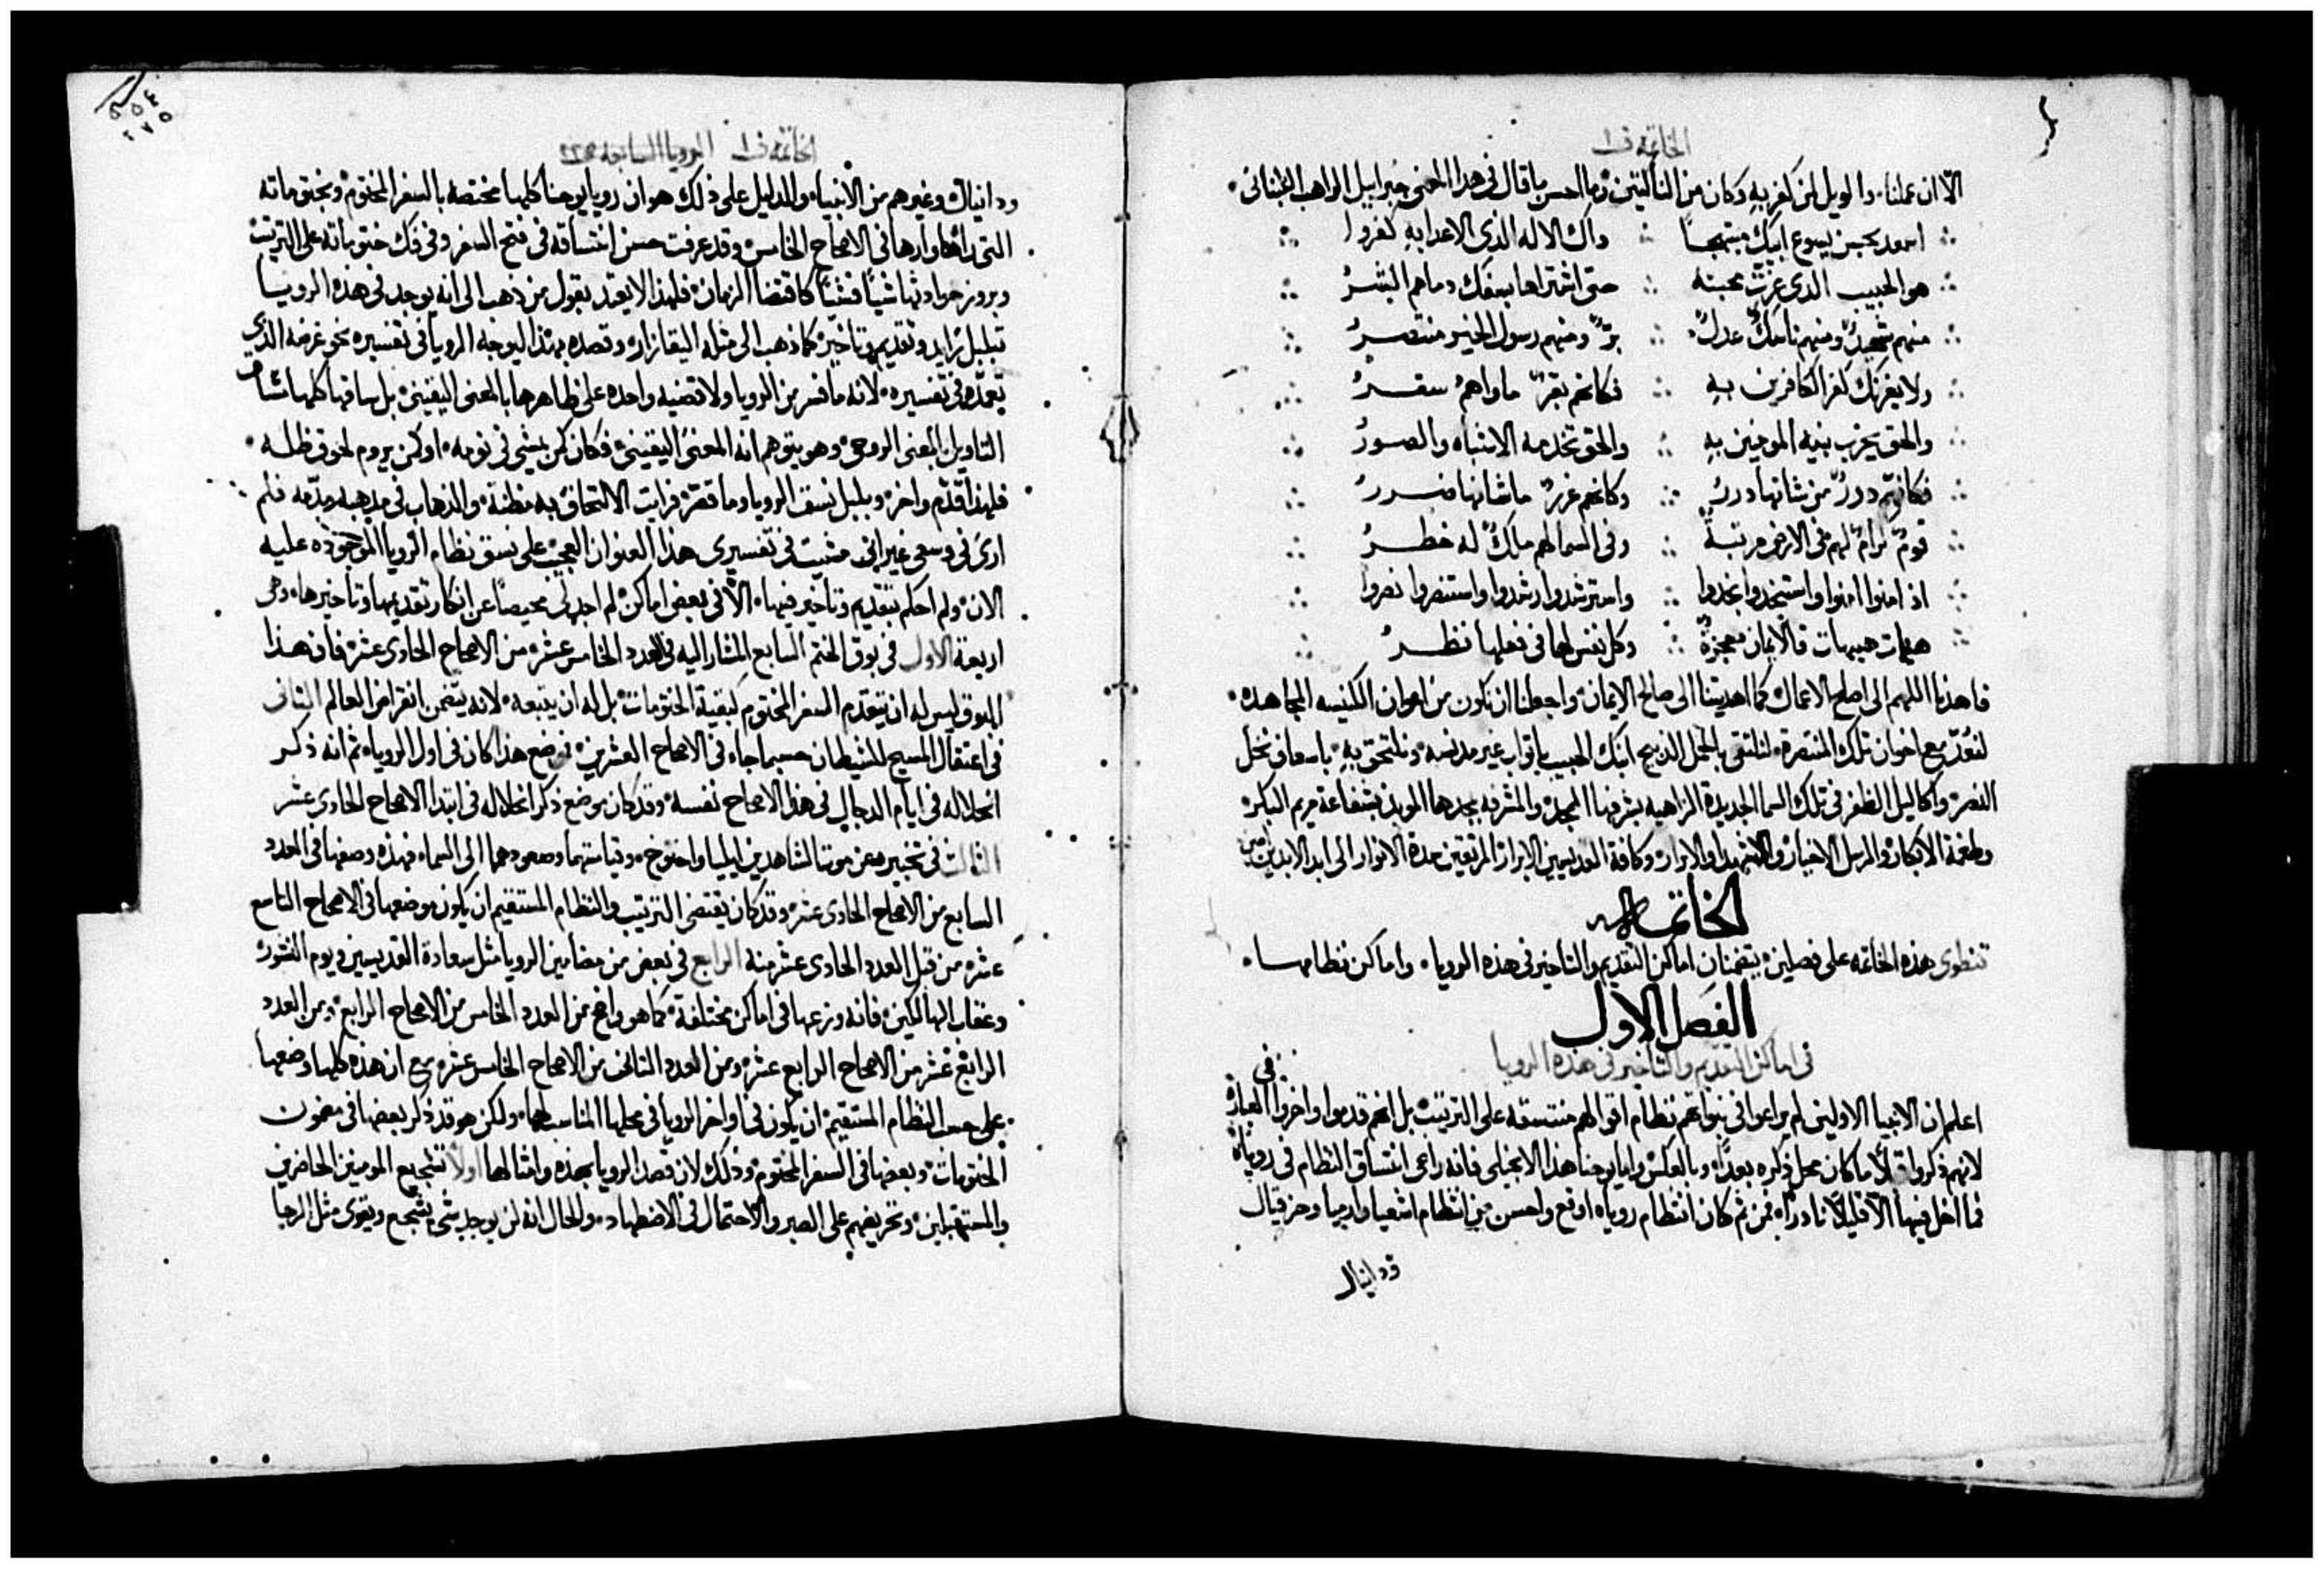 الخاتمه ف ١
الّا ان عملنا، والويل لمن كفر به وكان من الناكثين، وما احسن ما قال في هذا المعنى جبراييل الراهب اللبناني
اسعد بحبن يسوع ابنك مبتهجاً ∴ داك الاله الذى الاعدا به كفروا
هو الحبيب الدى عزت محبته ∴ حتى اشتراها بسفك دماهم البشرُ
منهم شهيدٌ ومنهم ناسكٌ عدلٌ ∴ برٌ ومنهم رسول الخير منتصرُ
ولا يغرنك كفر الكافرين به ∴ فكانهم بقرٌ ماواهمُ سقرُ
والحق يحزب بنيه المومنين به ∴ والحق تخدمه الاشباه والصورُ
فكانهم دررٌ من شانها دررُ ∴ وكانهم غررٌ ماشانها ضررُ
قومٌ كرامٌ لهم في الارض مرتبةٌ ∴ وفى السما لهم ملكٌ له خطرُ
اذ امنوا امنوا واستنجدوا نجدوا ∴ واسترشدوا رشدوا واستنصروا نصروا
هيهات هيهات فالايمان معجزةٌ ∴ وكل نفس لها فى فعلها نظرُ
فاهدنا اللهم الى اصلح الاعمال كما اهديتنا الى صالح الايمان، واجعلنا ان نكون من اخوان الكنيسه المجاهده
لنُعدّ مع اخوان تلك المنتصرة، لنلتقى بالحمل الذبيح ابنك الحبيب باثواب غير مدنسه، ونلتحق به، باسعاف نخل
النصر، واكاليل الظفر فى تلك السما الجديدة الزاهيه بشرفها الممجد، والمشرفه بمجدها الموبد بشفاعة مريم البكر
وطغمة الابكار، والرسل الاخيار، والشهدا والابرار، وكافة القديسين الابرار المرتقين سدة الانوار الى ابد الابدين امين
الخاتمه
تنطوى هذه الخاتمه على فصلين، يتضمنان اماكن التقديم والتاخير فى هذه الرويا، واماكن نظامها
الفصل الاول
فى اماكن التقديم والتاخير فى هذه الرويا
اعلم ان الانبيا الاولين لم يراعوا فى نبواتهم نظام اقوالهم منتسقه على الترتيب، بل انهم قدموا واخروا فى العبارة
لانهم ذكروا قبلاً ما كان محل ذكره بعداً، وبالعكس، واما يوحنا هذا الانجيلى فانه راعى انتساق النظام فى روياه
فما اخل فيها الّا قليلاً نادراً، فمن ثم كان انتظام روياه اوقع واحسن من انتظام اشعيا وارميا وحزقيال
ودانيال
الخاتمه ف ١ الرويا السابعه
ودانيال وغيرهم من الانبياء، والدليل على ذلك هو ان رويا يوحنا كلها مختصه بالسفر المختوم، وبختوماته
التى راها وارها فى الاصحاح الخامس، وقد عرفت حسن انتساقه فى فتح السفر وفى فك ختوماته على الترتيب
وبروز حوادثها شياً فشياً كاقتضا الزمان، فلهذا لا يعتد بقول من ذهب الى انه يوجد فى هذه الرويا
تبلبل زايد وتقديم وتاخير، كما ذهب الى مثله اليقازار، وقصده بهذا ليوجه الرويا فى تفسيره نحو غرضه الذي
تعمّده فى تفسيره، لانه ما فسر من الرويا ولا قضيه واحده على ظاهرها بالمعنى اليقينى، بل ساقها كلها مساق
التاويل بالمعنى الروحى، وهو يتوهم انه المعنى اليقينى، فكان كمن يمشى فى نومه، او كمن يروم لحوق ظله
فلهذا قدّم واخر، وبلبل نسق الرويا وما قصّر، فرايت الالتحاق به مظنة، والذهاب فى مذهبه مذمه، فلم
ارَى فى وسعى غير انى مشيت فى تفسيرى هذا العنوان العجيب على نسق نظام الرويا الموجوده عليه
الان، ولم احكم بتقديم وتاخير فيها، الّا فى بعض اماكن، لم اجد لى محيصاً عن انكار تقديمها وتاخيرها، وهى
اربعة الاول فى بوق الختم السابع المشار اليه فى العدد الخامس عشر من الاصحاح الحادى عشر، فان هذا
البوق ليس له ان يتقدم السفر المختوم كبقية الختومات، بل له ان يتبعه، لانه يتضمن انقراض العالم الثانى
فى اعتقال المسيح للشيطان حسبما جاء فى الاصحاح العشرين، فوضع هذا كان فى اول الرويا، ثم انه ذكر
انحلاله فى ايام الدجال فى هذا الاصحاح نفسه، وقد كان موضع ذكر انحلاله فى ابتدا الاصحاح الحادى عشر
الثالث فى تخبيره عن موت الشاهدين ايليا واخنوخ، وقيامتهما وصعودهما الى السماء، فهذه وصفها فى العدد
السابع من الاصحاح الحادى عشر، وقد كان يقتضى الترتيب والنظام المستقيم ان يكون موضعها فى الاصحاح التاسع
عشر، من قبل العدد الحادى عشر منه الرابع فى بعض من مضامين الرويا مثل سعادة القديسين، ويوم النشور
وعقاب الهالكين، فانه وزعها فى اماكن مختلفة، كما هو واضح من العدد الخامس من الاصحاح الرابع، ومن العدد
الرابع عشر من الاصحاح الرابع عشر، ومن العدد الثانى من الاصحاح الخامس عشر، مع ان هذه كلها وضعها
على حسب النظام المستقيم، ان يكون فى اواخر الرويا فى محلها المناسب لها، ولكن هو قد ذكر بعضها فى مضمون
الختومات، وبعضها فى السفر المختوم، وذلك لان قصد الرويا بهذه وامثالها اولاً تشجيع المومنين الحاضرين
والمستقبلين، وتحريضهم على الصبر والاحتمال فى الاضطهاد، والحال انه لن يوجد شى يشجع ويقوى مثل الرجا